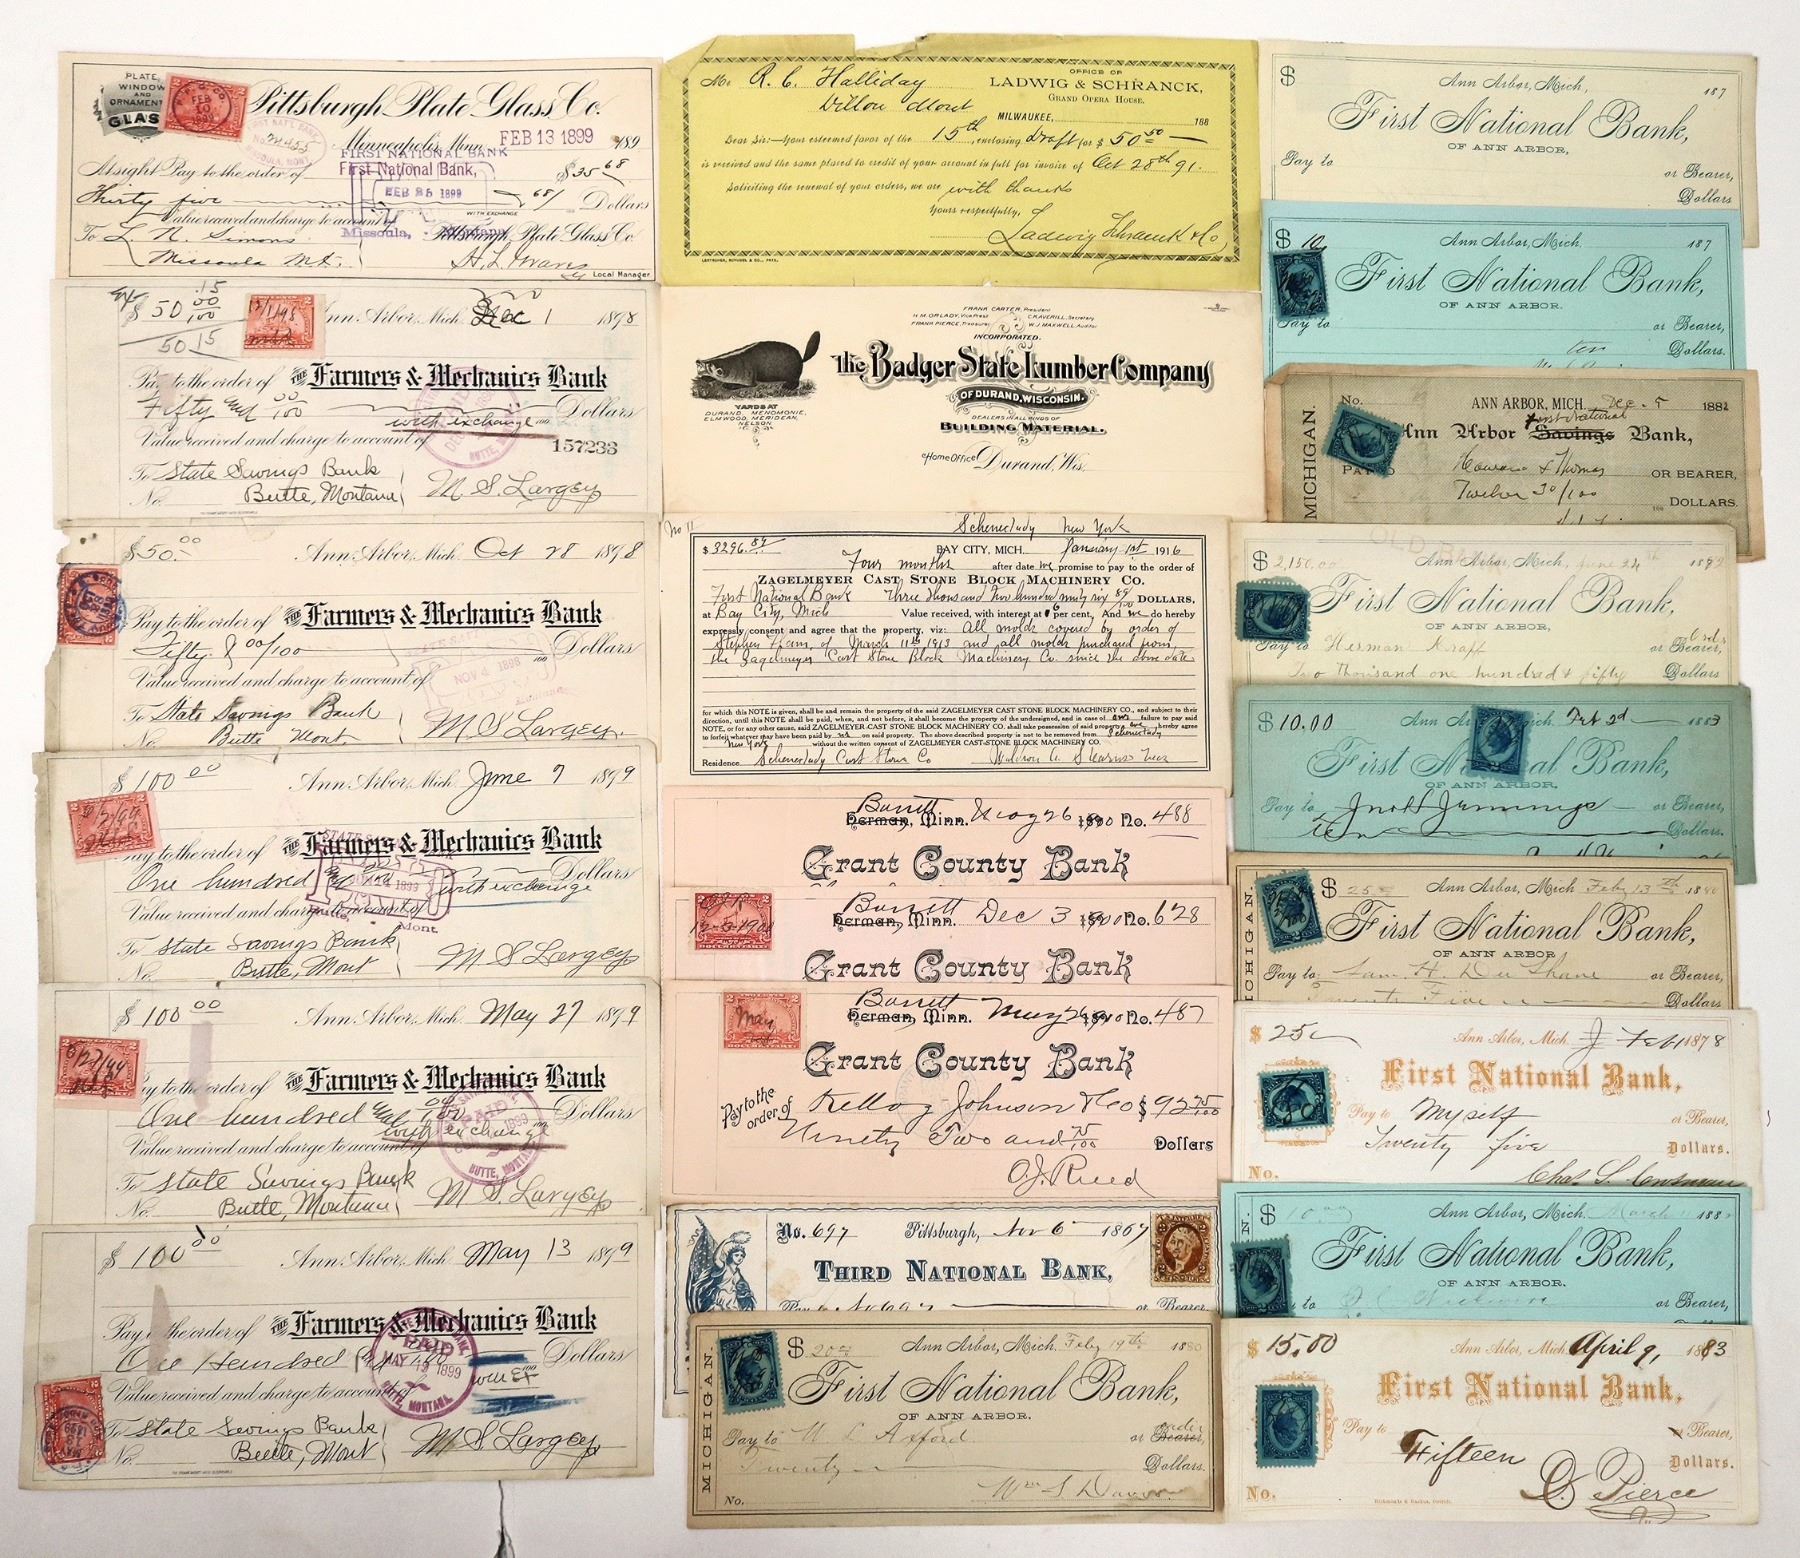 PLATE,
WINDOW
AND
ORNAMENT
GLAS
Pittsburgh Plate Glass Co.
Minneapolis, Minn. FEB 13 1899 189
FIRST NATIONAL BANK
First National Bank,
FEB 25 1899
At sight Pay to the order of $35 68
Thirty five 68/ Dollars
WITH EXCHANGE
Value received and charge to account of
Missoula, Montana
To L. N. Simons Pittsburgh Plate Glass Co.
Missoula Mt. Local Manager
$ 50 00/100 .15
50.15
Ann Arbor, Mich. Dec 1 1898
Pay to the order of THE Farmers & Mechanics Bank
Fifty and 00/100 Dollars
with exchange
Value received and charge to account of 157233
To State Savings Bank
No. Butte, Montana M. S. Largey
$ 50.00 Ann Arbor, Mich. Oct 28 1898
Pay to the order of THE Farmers & Mechanics Bank
Fifty & 00/100 Dollars
NOV 4 1898
Value received and charge to account of
To State Savings Bank
No. Butte Mont. M S Largey.
$ 100 00 Ann Arbor, Mich. June 7 1899
Pay to the order of THE Farmers & Mechanics Bank
One hundred and Dollars
with exchange
Value received and charge to account of
Mont.
To State Savings Bank
No. Butte, Mont M S Largey
$ 100 00 Ann Arbor, Mich. May 27 1899
Pay to the order of THE Farmers & Mechanics Bank
One hundred and 00/100 Dollars
with exchange
Value received and charge to account of
BUTTE, MONTANA
To State Savings Bank
No. Butte, Montana M S. Largey
$ 100 00 Ann Arbor, Mich. May 13 1899
Pay to the order of THE Farmers & Mechanics Bank
PAID
MAY 19 1899
BUTTE, MONTANA
One Hundred Dollars
with Ex
Value received and charge to account of
To State Savings Bank
No. Butte, Mont M S Largey
OFFICE OF
Mr R. C. Halliday LADWIG & SCHRANCK,
Dillon Mont GRAND OPERA HOUSE.
MILWAUKEE, 188
Dear Sir:—Your esteemed favor of the 15th, enclosing draft for $ 50.50
is received and the same placed to credit of your account in full for invoice of Oct 28th 91.
Soliciting the renewal of your orders, we are with thanks
Yours respectfully,
Ladwig Schranck & Co,
FRANK CARTER, President
H.M. ORLADY, Vice Prest C.R. AVERILL, Secretary
FRANK PIERCE, Treasurer W.J. MAXWELL, Auditor
INCORPORATED.
The Badger State Lumber Company
OF DURAND, WISCONSIN.
YARDS AT
DURAND, MENOMONIE,
ELMWOOD, MERIDEAN,
NELSON
DEALERS IN ALL KINDS OF
BUILDING MATERIAL.
Home Office Durand, Wis.
No 11 Schenectady New York
$ 3296.89 BAY CITY, MICH. January 1st 1916
Four months after date we promise to pay to the order of
ZAGELMEYER CAST STONE BLOCK MACHINERY CO.
First National Bank Three thousand two hundred ninty six 89/100 DOLLARS,
at Bay City, Mich Value received, with interest at 6 per cent, And we do hereby
expressly consent and agree that the property, viz: All molds covered by order of
Stephen Kram, of March 11th 1913 and all molds purchased from
the Zagelmeyer Cast Stone Block Machinery Co. since the above date
for which this NOTE is given, shall be and remain the property of the said ZAGELMEYER CAST STONE BLOCK MACHINERY CO., and subject to their
direction, until this NOTE shall be paid, when, and not before, it shall become the property of the undersigned, and in case of our failure to pay said
NOTE, or for any other cause, said ZAGELMEYER CAST STONE BLOCK MACHINERY CO. shall take possession of said property we hereby agree
to forfeit whatever may have been paid by us on said property. The above described property is not to be removed from Schenectady
New York without the written consent of ZAGELMEYER CAST-STONE BLOCK MACHINERY CO.
Residence Schenectady Cast Stone Co
Barrett
Herman, Minn. May 26 1900 No. 488
Grant County Bank
Barrett
Herman, Minn. Dec 3 1900 No. 628
Grant County Bank
Barrett
Herman, Minn. May 26 1900 No. 487
Grant County Bank
Pay to the order of Kellog Johnson & Co $ 92 75/100
Ninety Two and 75/100 Dollars
O. J. Reed
No. 697 Pittsburgh, Nov 6 1867
THIRD NATIONAL BANK,
or Bearer
MICHIGAN.
$ 20 Ann Arbor, Mich. Feby 19th 1880
First National Bank,
OF ANN ARBOR.
Pay to W L Axford or Bearer,
Twenty Dollars.
No.
$ Ann Arbor, Mich, 187
First National Bank,
OF ANN ARBOR,
Pay to or Bearer,
Dollars
$ 10 Ann Arbor, Mich. 187
First National Bank,
OF ANN ARBOR.
Pay to or Bearer,
ten Dollars.
MICHIGAN.
No. ANN ARBOR, MICH. Dec. 5 1882
First National
Ann Arbor Savings Bank,
PAY TO Howard & Thomas OR BEARER,
Twelve 30/100 DOLLARS.
$ 2,150.00 Ann Arbor, Mich, June 24th
First National Bank,
OF ANN ARBOR.
Pay to Herman Krapf or Bearer,
Two thousand one hundred & fifty Dollars
$ 10.00 Ann Arbor, Mich. Feb 2d 1883
First National Bank,
OF ANN ARBOR,
Pay to Jno H Jennings or Bearer,
Ten Dollars.
MICHIGAN.
$ 25 Ann Arbor, Mich Feby 13th 1880
First National Bank,
OF ANN ARBOR
Pay to Sam. H. or Bearer,
Twenty Five Dollars
$ 25 Ann Arbor, Mich. Feb 1878
First National Bank,
Pay to Myself or Bearer,
Twenty five Dollars.
No.
$ 10.00 Ann Arbor, Mich. March 188
First National Bank,
OF ANN ARBOR.
to or Bearer,
$ 15.00 Ann Arbor, Mich. April 9, 1883
First National Bank,
Pay to or Bearer,
Fifteen Dollars.
No. D. Pierce